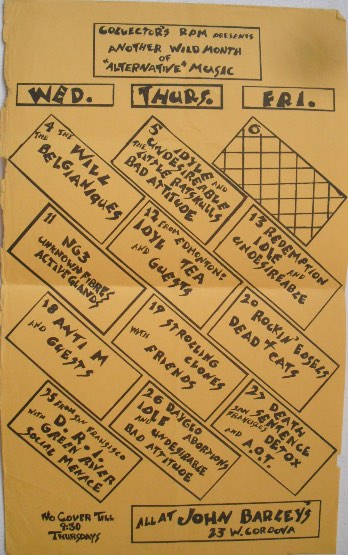 COLLECTOR'S RPM PRESENTS
ANOTHER WILD MONTH
OF
"ALTERNATIVE" MUSIC
WED.
THURS.
FRI.
4 THE WILL
THE BELGIANIQUES
5 IDYLE AND
UNDESIREABLE
THE TATTLE RATSKULLS
BAD ATTITUDE
6
11
NG3
UNKNOWN FIBRES
ACTIVE GLANDS
12 FROM EDMONTON:
IDYL TEA
AND GUESTS
13 REDEMPTION
IDLE AND
UNDESIREABLE
18 ANTI M
AND GUESTS
19 STROLLING
CLONES
WITH FRIENDS
20
ROCKIN' EDSELS
DEAD CATS
25 FROM SAN FRANCISCO
D.R.I.
WITH GREEN RIVER
SOCIAL MENACE
26 DAYGLO ABORTIONS
IDLE
AND UNDESIRABLE
BAD ATTITUDE
27 DEATH
SENTENCE
SAN FRANCISCO'S DETOX
AND A.O.T.
NO COVER TILL
9:30
THURSDAYS
ALL AT JOHN BARLEY'S
23 W. CORDOVA